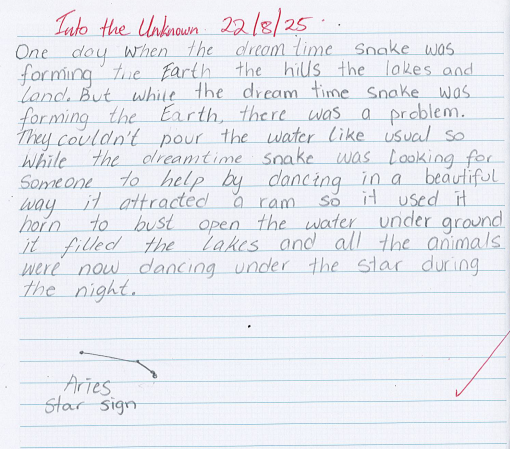 Into the Unknown 22/8/25
One day when the dream time snake was
forming the Earth the hills the lakes and
Land. But while the dream time snake was
forming the Earth, there was a problem.
They couldn't pour the water like usual so
While the dreamtime snake was looking for
Someone to help by dancing in a beautiful
way it attracted a ram so it used it
horn to bust open the water under ground
it filled the lakes and all the animals
were now dancing under the star during
the night.
Aries
Star sign